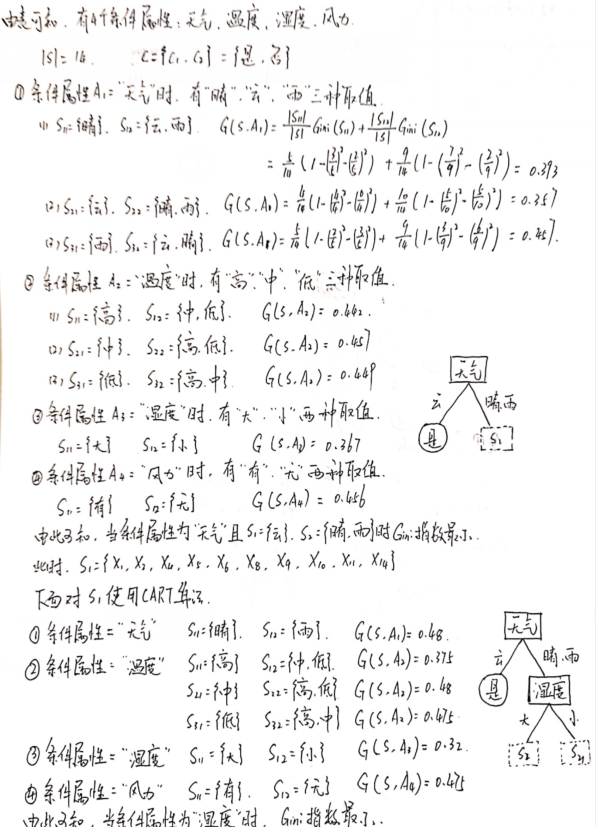 由表可知,有4个条件属性:天气、温度、湿度、风力.
|S|=14. C={C₁,C₂}={是,否}
① 条件属性A₁="天气"时,有"晴"、"云"、"雨"三种取值.
(1) S₁₁={晴}. S₁₂={云,雨}. G(S,A₁)=|S₁₁|/|S| Gini(S₁₁)+|S₁₂|/|S| Gini(S₁₂)
=5/14(1-(3/5)²-(2/5)²)+9/14(1-(7/9)²-(2/9)²)=0.393
(2) S₂₁={云}. S₂₂={晴,雨}. G(S,A₁)=4/14(1-(4/4)²-(0/4)²)+10/14(1-(5/10)²-(5/10)²)=0.357
(3) S₃₁={雨}. S₃₂={云,晴}. G(S,A₁)=5/14(1-(2/5)²-(3/5)²)+9/14(1-(3/9)²-(6/9)²)=0.457.
② 条件属性A₂="温度"时,有"高"、"中"、"低"三种取值.
(1) S₁₁={高}. S₁₂={中,低}. G(S,A₂)=0.442.
(2) S₂₁={中}. S₂₂={高,低}. G(S,A₂)=0.457
(3) S₃₁={低}. S₃₂={高,中} G(S,A₂)=0.449
③ 条件属性A₃="湿度"时,有"大"、"小"两种取值.
S₁₁={大} S₁₂={小} G(S,A₃)=0.367
④ 条件属性A₄="风力"时,有"有"、"无"两种取值.
S₁₁={有} S₁₂={无} G(S,A₄)=0.456
天气
云 晴,雨
是 S₁
由此可知,当条件属性为"天气"且S₁={云}. S₂={晴,雨}时Gini指数最小.
此时. S₁={X₁,X₂,X₄,X₅,X₆,X₈,X₉,X₁₀,X₁₁,X₁₄}
下面对S₁使用CART算法.
① 条件属性="天气" S₁₁={晴}. S₁₂={雨}. G(S,A₁)=0.48.
② 条件属性="温度" S₁₁={高} S₁₂={中,低}. G(S,A₂)=0.375
S₂₁={中} S₂₂={高,低} G(S,A₂)=0.48
S₃₁={低} S₃₂={高,中} G(S,A₂)=0.475
③ 条件属性="湿度" S₁₁={大} S₁₂={小} G(S,A₃)=0.32.
④ 条件属性="风力" S₁₁={有}. S₁₂={无} G(S,A₄)=0.475
天气
云 晴,雨
是 湿度
大 小
S₂ S₃
由此可知,当条件属性为"湿度"时,Gini指数最小.